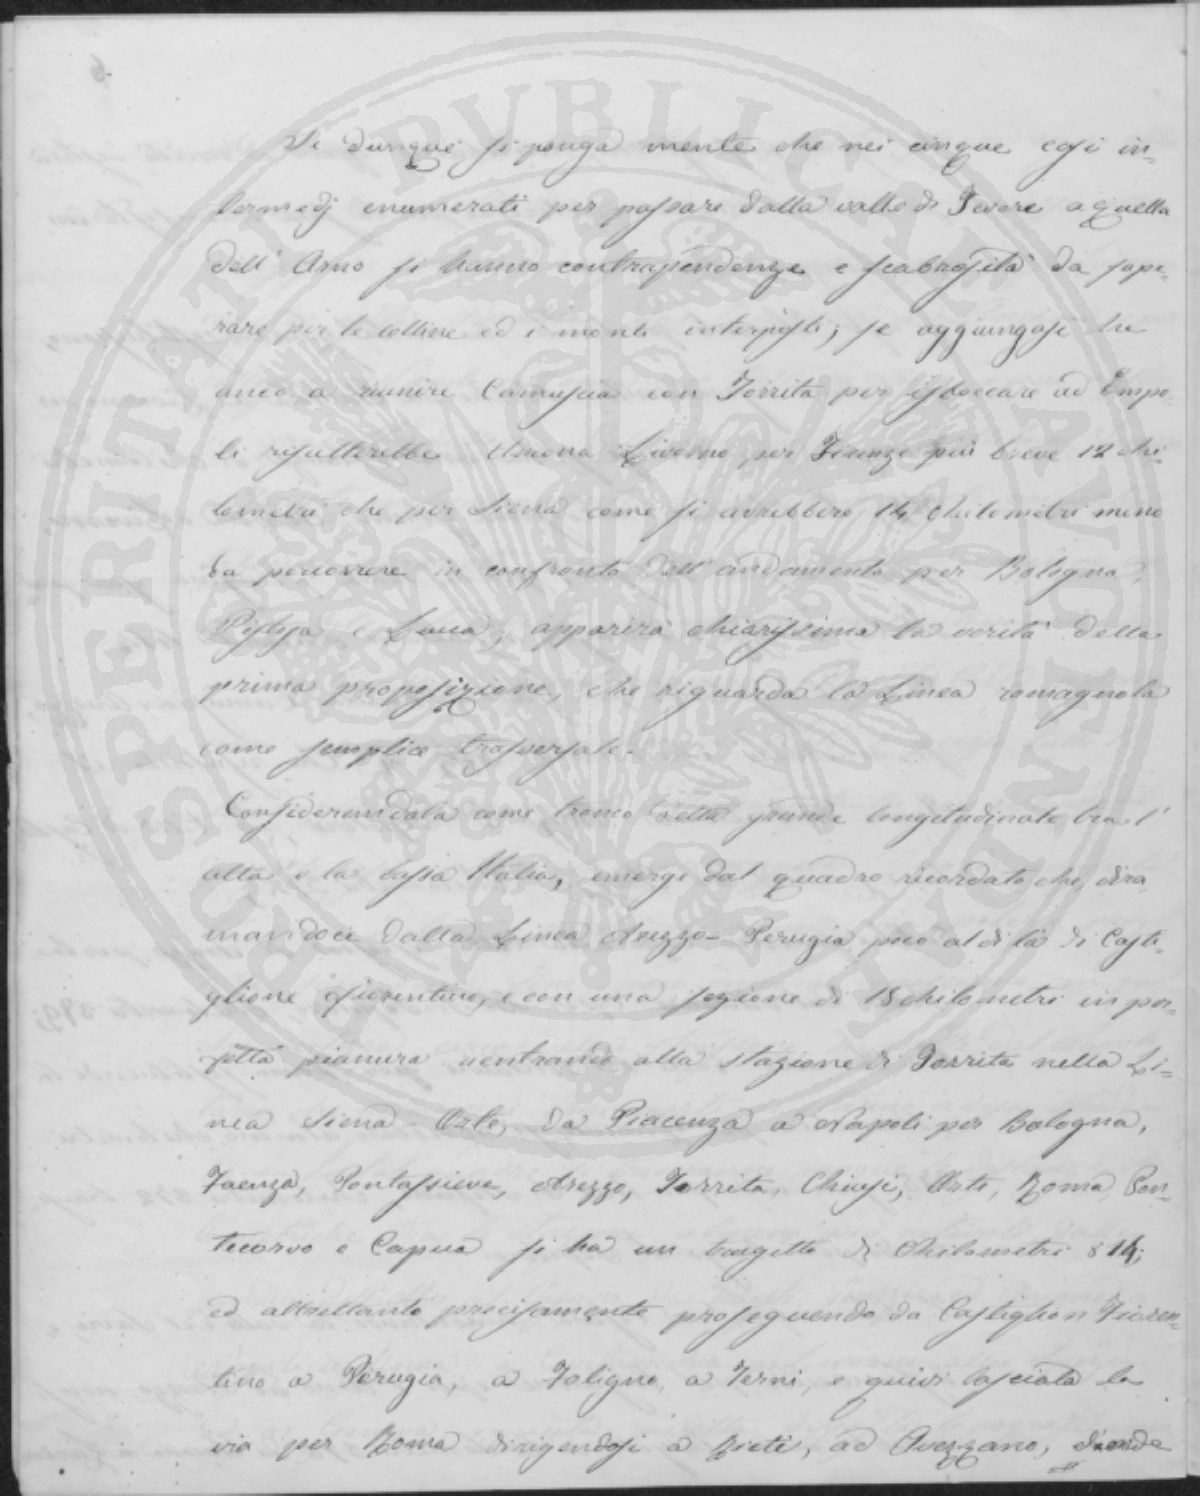 Se dunque si ponga mente che nei cinque casi in-
termedj enumerati per passare dalla valle di Tevere a quella
dell' Arno si hanno contrapendenze e scabrosità da supe-
rare per le colline ed i monti interposti; se aggiungasi che
anco a riunire Camuscia con Torrita per isboccare ad Empo-
li risulterebbe Ancona Livorno per Firenze più breve 12 chi-
lometri che per Siena come si avrebbero 14 chilometri meno
da percorrere in confronto dell' andamento per Bologna,
Pistoja e Lucca; apparirà chiarissima la verità della
prima proposizione, che riguarda la Linea romagnola
come semplice trasversale.
Considerandola come tronco della grande longitudinale tra l'
alta e la bassa Italia, emerge dal quadro ricordato che dira-
mandoci dalla Linea Arezzo-Perugia poco al di là di Casti-
glione Fiorentino, e con una sezione di 18 chilometri in per-
fetta pianura rientrando alla stazione di Torrita nella Li-
nea Siena-Orte, da Piacenza a Napoli per Bologna,
Faenza, Pontassieve, Arezzo, Torrita, Chiusi, Orte, Roma, Pon-
tecorvo e Capua si ha un tragitto di Chilometri 814;
ed altrettanto precisamente proseguendo da Castiglion Fioren-
tino a Perugia, a Foligno, a Terni, e quivi lasciata la
via per Roma dirigendosi a Rieti, ad Avezzano, d'onde
PROSPERITATI PUBLICAE AUGENDAE